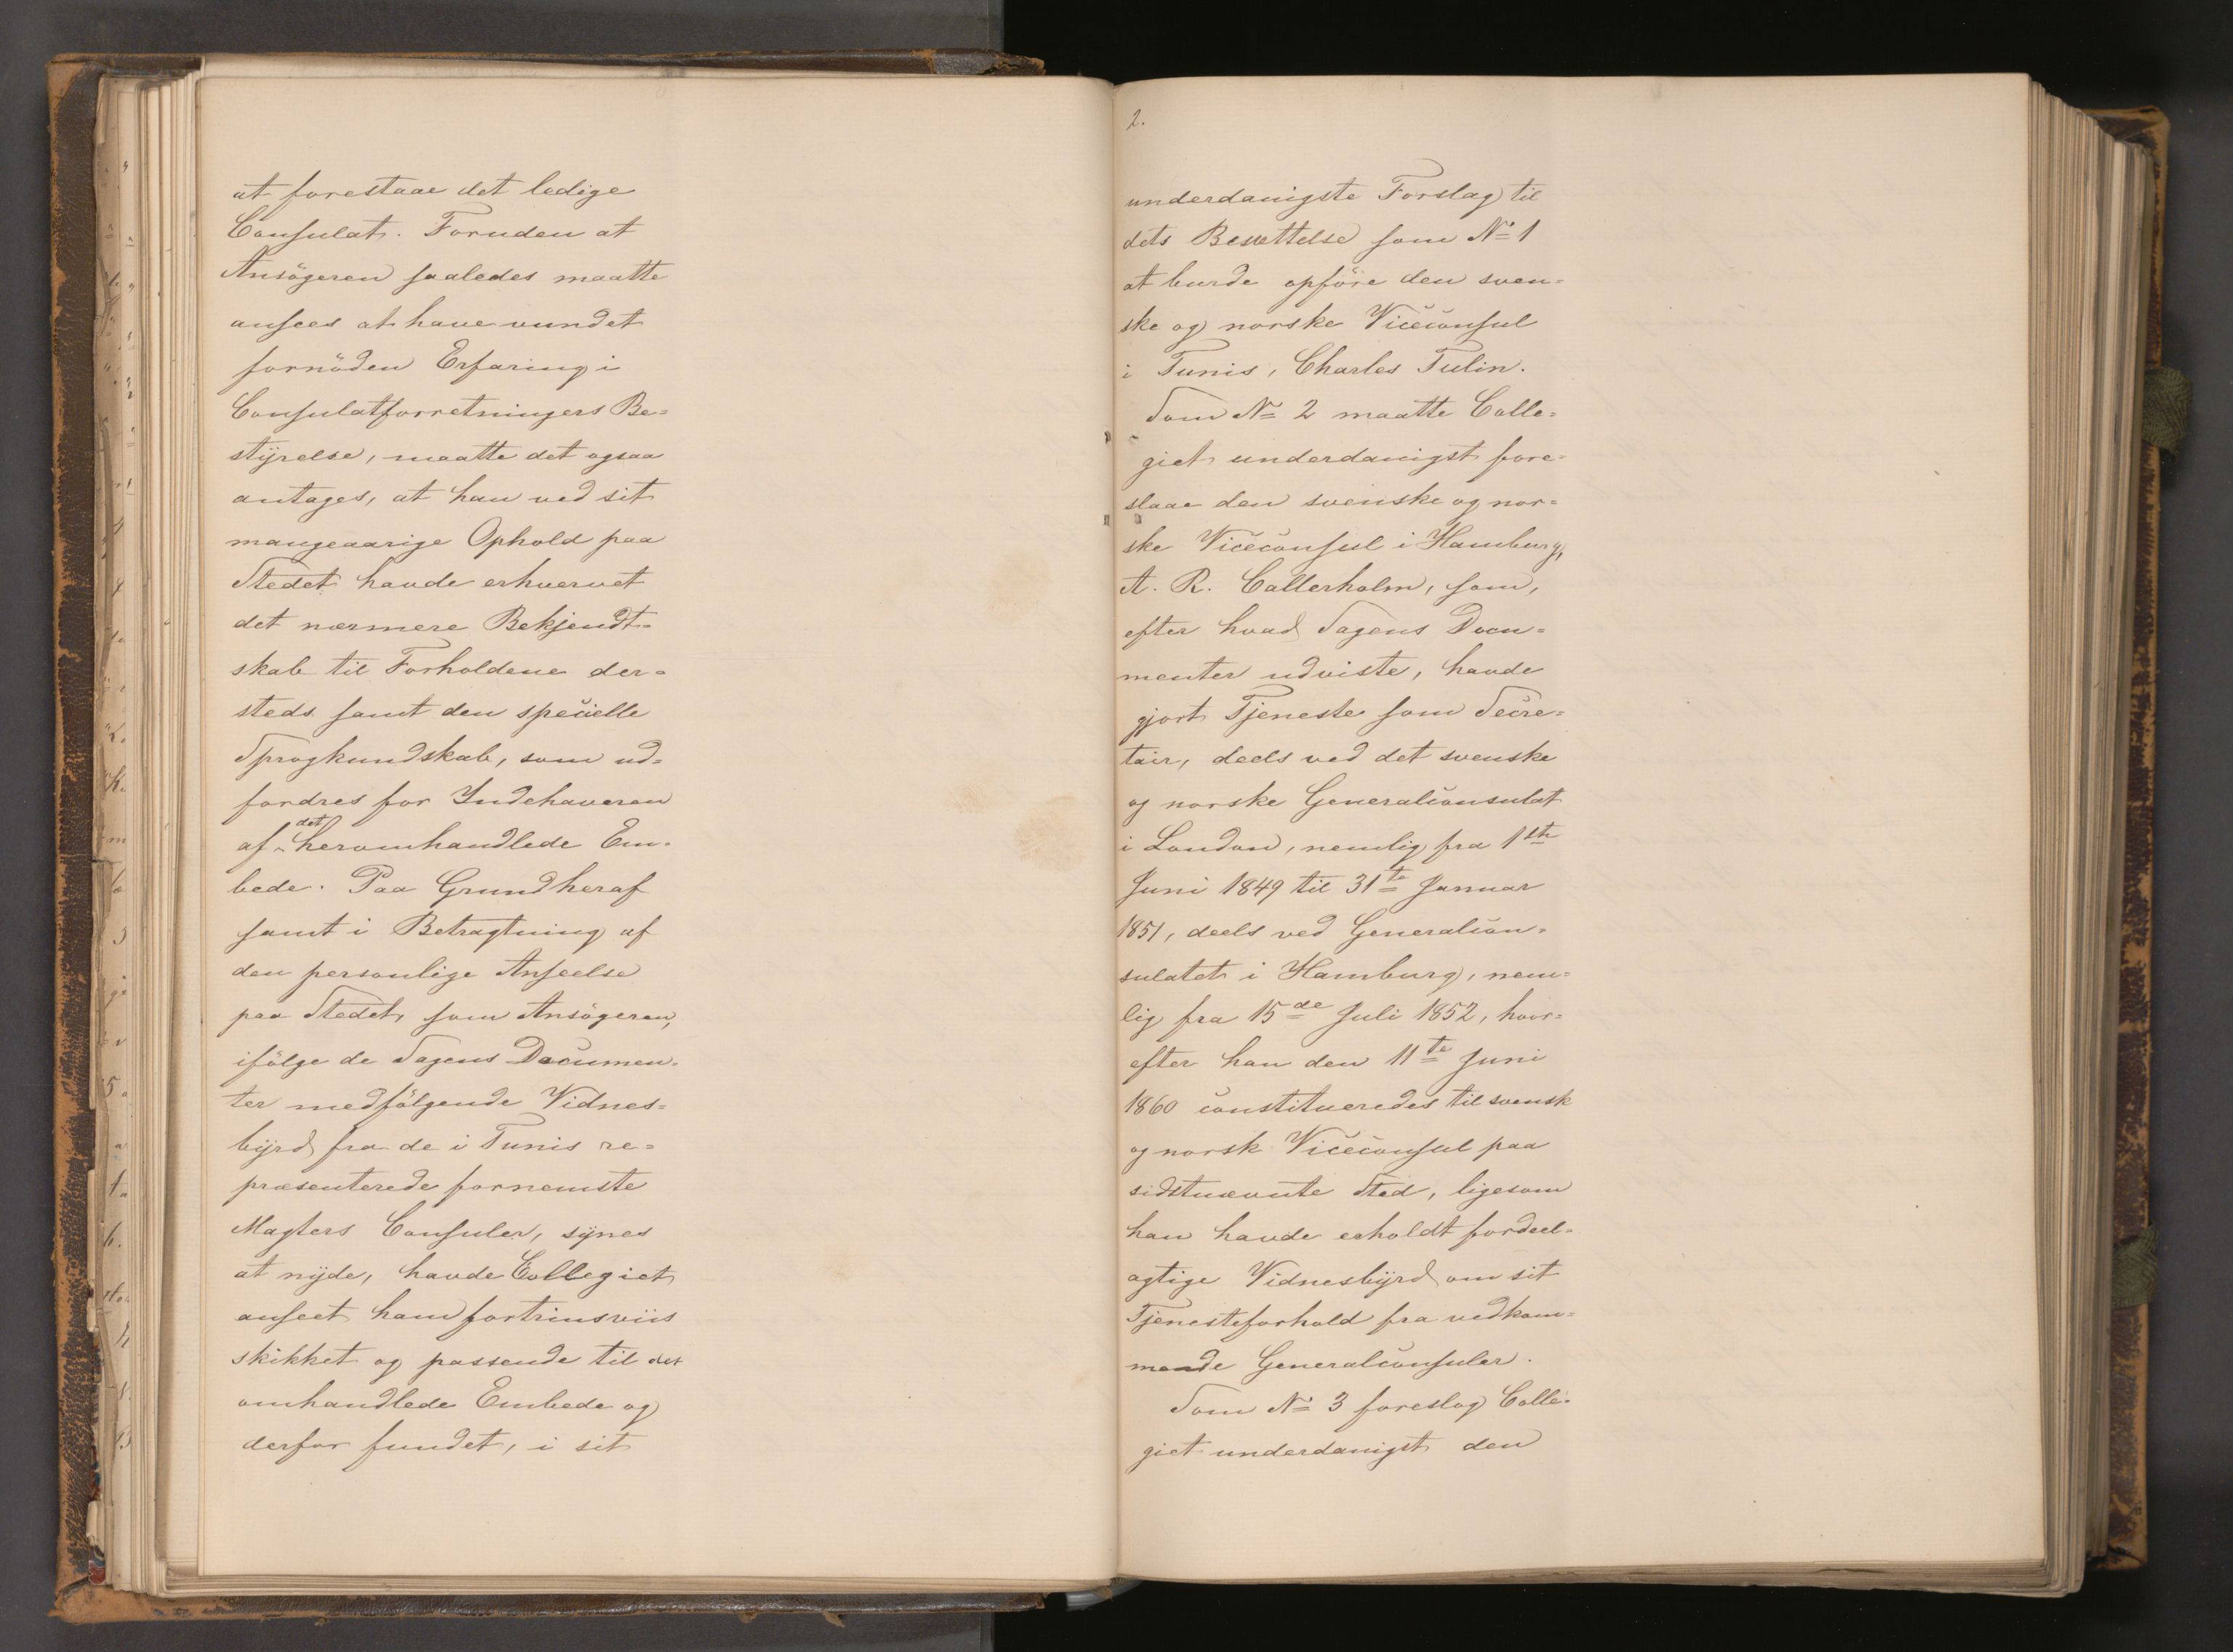 at forestaae det ledige
Consulat. Foruden at
Ansögeren saaledes maatte
ansees at have vundet
fornöden Erfaring i
Consulatforretningers Be=
styrelse, maatte det ogsaa
antages, at han ved sit
mangeaarige Ophold paa
Stedet havde erhvervet
det nærmere Bekjendt=
skab til Forholdene der=
steds samt den specielle
Sprogkundskab, som ud=
fordres for Indehaveren
af det heromhandlede Em=
bede. Paa Grund heraf
samt i Betragtning af
den personlige Anseelse
paa Stedet, som Ansögeren,
ifölge de Sagens Documen=
ter medfölgende Vidnes=
byrd fra de i Tunis re=
præsenterede fornemste
Magters Consuler, synes
at nyde, havde Collegiet
anseet ham fortrinsviis
skikket og passende til det
omhandlede Embede og
derfor fundet, i sit
2.
underdanigste Forslag til
dets Besættelse som No 1
at burde opföre den sven=
ske og norske Viceconsul
i Tunis, Charles Tulin.
Som No 2 maatte Colle=
giet underdanigst fore=
slaae den svenske og nor=
ske Viceconsul i Hamburg,
A. R. Callerholm, som,
efter hvad Sagens Docu=
menter udviste, havde
gjort Tjeneste som Secre=
tair, deels ved det svenske
og norske Generalconsulat
i London, nemlig fra 1ste
Juni 1849 til 31te Januar
1851, deels ved Generalcon=
sulatet i Hamburg, nem=
lig fra 15de Juli 1852, hvor=
efter han den 11te Juni
1860 constitueredes til svensk
og norsk Viceconsul paa
sidstnævnte Sted, ligesom
han havde erholdt fordeel=
agtige Vidnesbyrd om sit
Tjenesteforhold fra vedkom=
mende Generalconsuler.
Som No 3 foreslog Colle=
giet underdanigst den